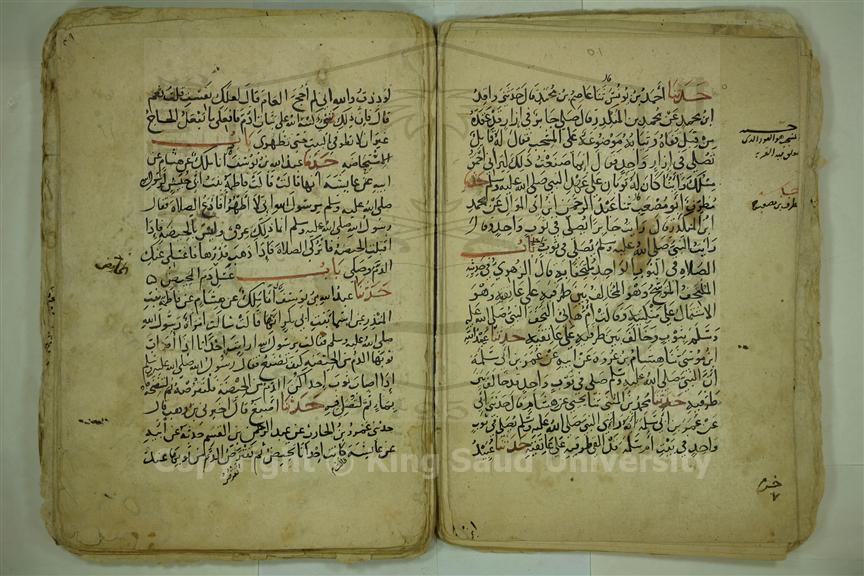 حدثنا احمد بن يونس ثنا عاصم بن محمد قال حدثني واقد
ابن محمد عن محمد بن المنكدر قال صلى جابر في ازار قد عقده
من قبل قفاه وثيابه موضوعة على المشجب فقال له قايل
تصلي في ازار واحد فقال انما صنعت ذلك ليراني احمق
مثلك واينا كان له ثوبان على عهد النبي صلى الله عليه وسلم حدثنا
مطرف ابو مصعب ثنا عبد الرحمن بن ابي الموال عن محمد
ابن المنكدر قال رايت جابرا يصلي في ثوب واحد وقال
رايت النبي صلى الله عليه وسلم يصلي في ثوب باب
الصلاة في الثوب الواحد ملتحفا به قال الزهري في حديثه
الملتحف المتوشح وهو المخالف بين طرفيه على عاتقيه وهو
الاشتمال على منكبيه وقالت ام هاني التحف النبي صلى الله عليه
وسلم بثوب وخالف بين طرفيه على عاتقيه حدثنا عبيد الله
ابن موسى ثنا هشام بن عروة عن ابيه عن عمر بن ابي سلمة
ان النبي صلى الله عليه وسلم صلى في ثوب واحد قد خالف بين
طرفيه حدثنا محمد بن المثنى ثنا يحيى عن هشام قال حدثني ابي
عن عمر بن ابي سلمة انه راى النبي صلى الله عليه وسلم يصلي في ثوب
واحد في بيت ام سلمة قد القى طرفيه على عاتقيه حدثنا عبيد
لوددت والله اني لم احج العام قال لعلك نفست قلت نعم
قال فان ذلك شي كتبه الله على بنات ادم فافعلي ما يفعل الحاج
غير ان لا تطوفي بالبيت حتى تطهري باب
الاستحاضة حدثنا عبد الله بن يوسف انا مالك عن هشام عن
ابيه عن عايشة انها قالت قالت فاطمة بنت ابي حبيش لرسول الله
صلى الله عليه وسلم يرسول الله اني لا اطهر افادع الصلاة فقال
رسول الله صلى الله عليه وسلم انما ذلك عرق وليس بالحيضة فاذا
اقبلت الحيضة فاتركي الصلاة فاذا ذهب قدرها فاغسلي عنك
الدم وصلي باب غسل دم الحيض
حدثنا عبد الله بن يوسف انا مالك عن هشام عن فاطمة بنت
المنذر عن اسما بنت ابي بكر انها قالت سالت امراة رسول الله
صلى الله عليه وسلم فقالت يرسول الله ارايت احدانا اذا اصاب
ثوبها الدم من الحيضة كيف تصنع فقال رسول الله صلى الله عليه وسلم
اذا اصاب ثوب احداكن الدم من الحيضة فلتقرصه ثم لتنضحه
بماء ثم لتصلي فيه حدثنا اصبغ قال اخبرني ابن وهب قال
حدثني عمرو بن الحارث عن عبد الرحمن بن القسم حدثه عن ابيه
عن عايشة قالت كانت احدانا تحيض ثم تقترص الدم من ثوبها عند
Copyright © King Saud University